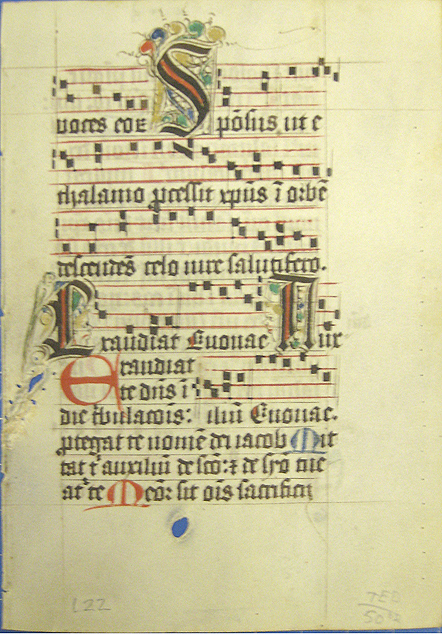 uoces eoꝝ Spōsus ut e
thalamo ꝓcessit xp̄us ī orbē
descendēs celo iure salutifero.
Exaudiat Euouae Aux
Exaudiat
te dn̄s ī
die tbulacōis: iliū Euouae.
ꝓtegat te nomē dei iacob Mit
tat t' auxiliū de scō: ⁊ de syō tue
at' te Meōr sit oīs sacrificij
122